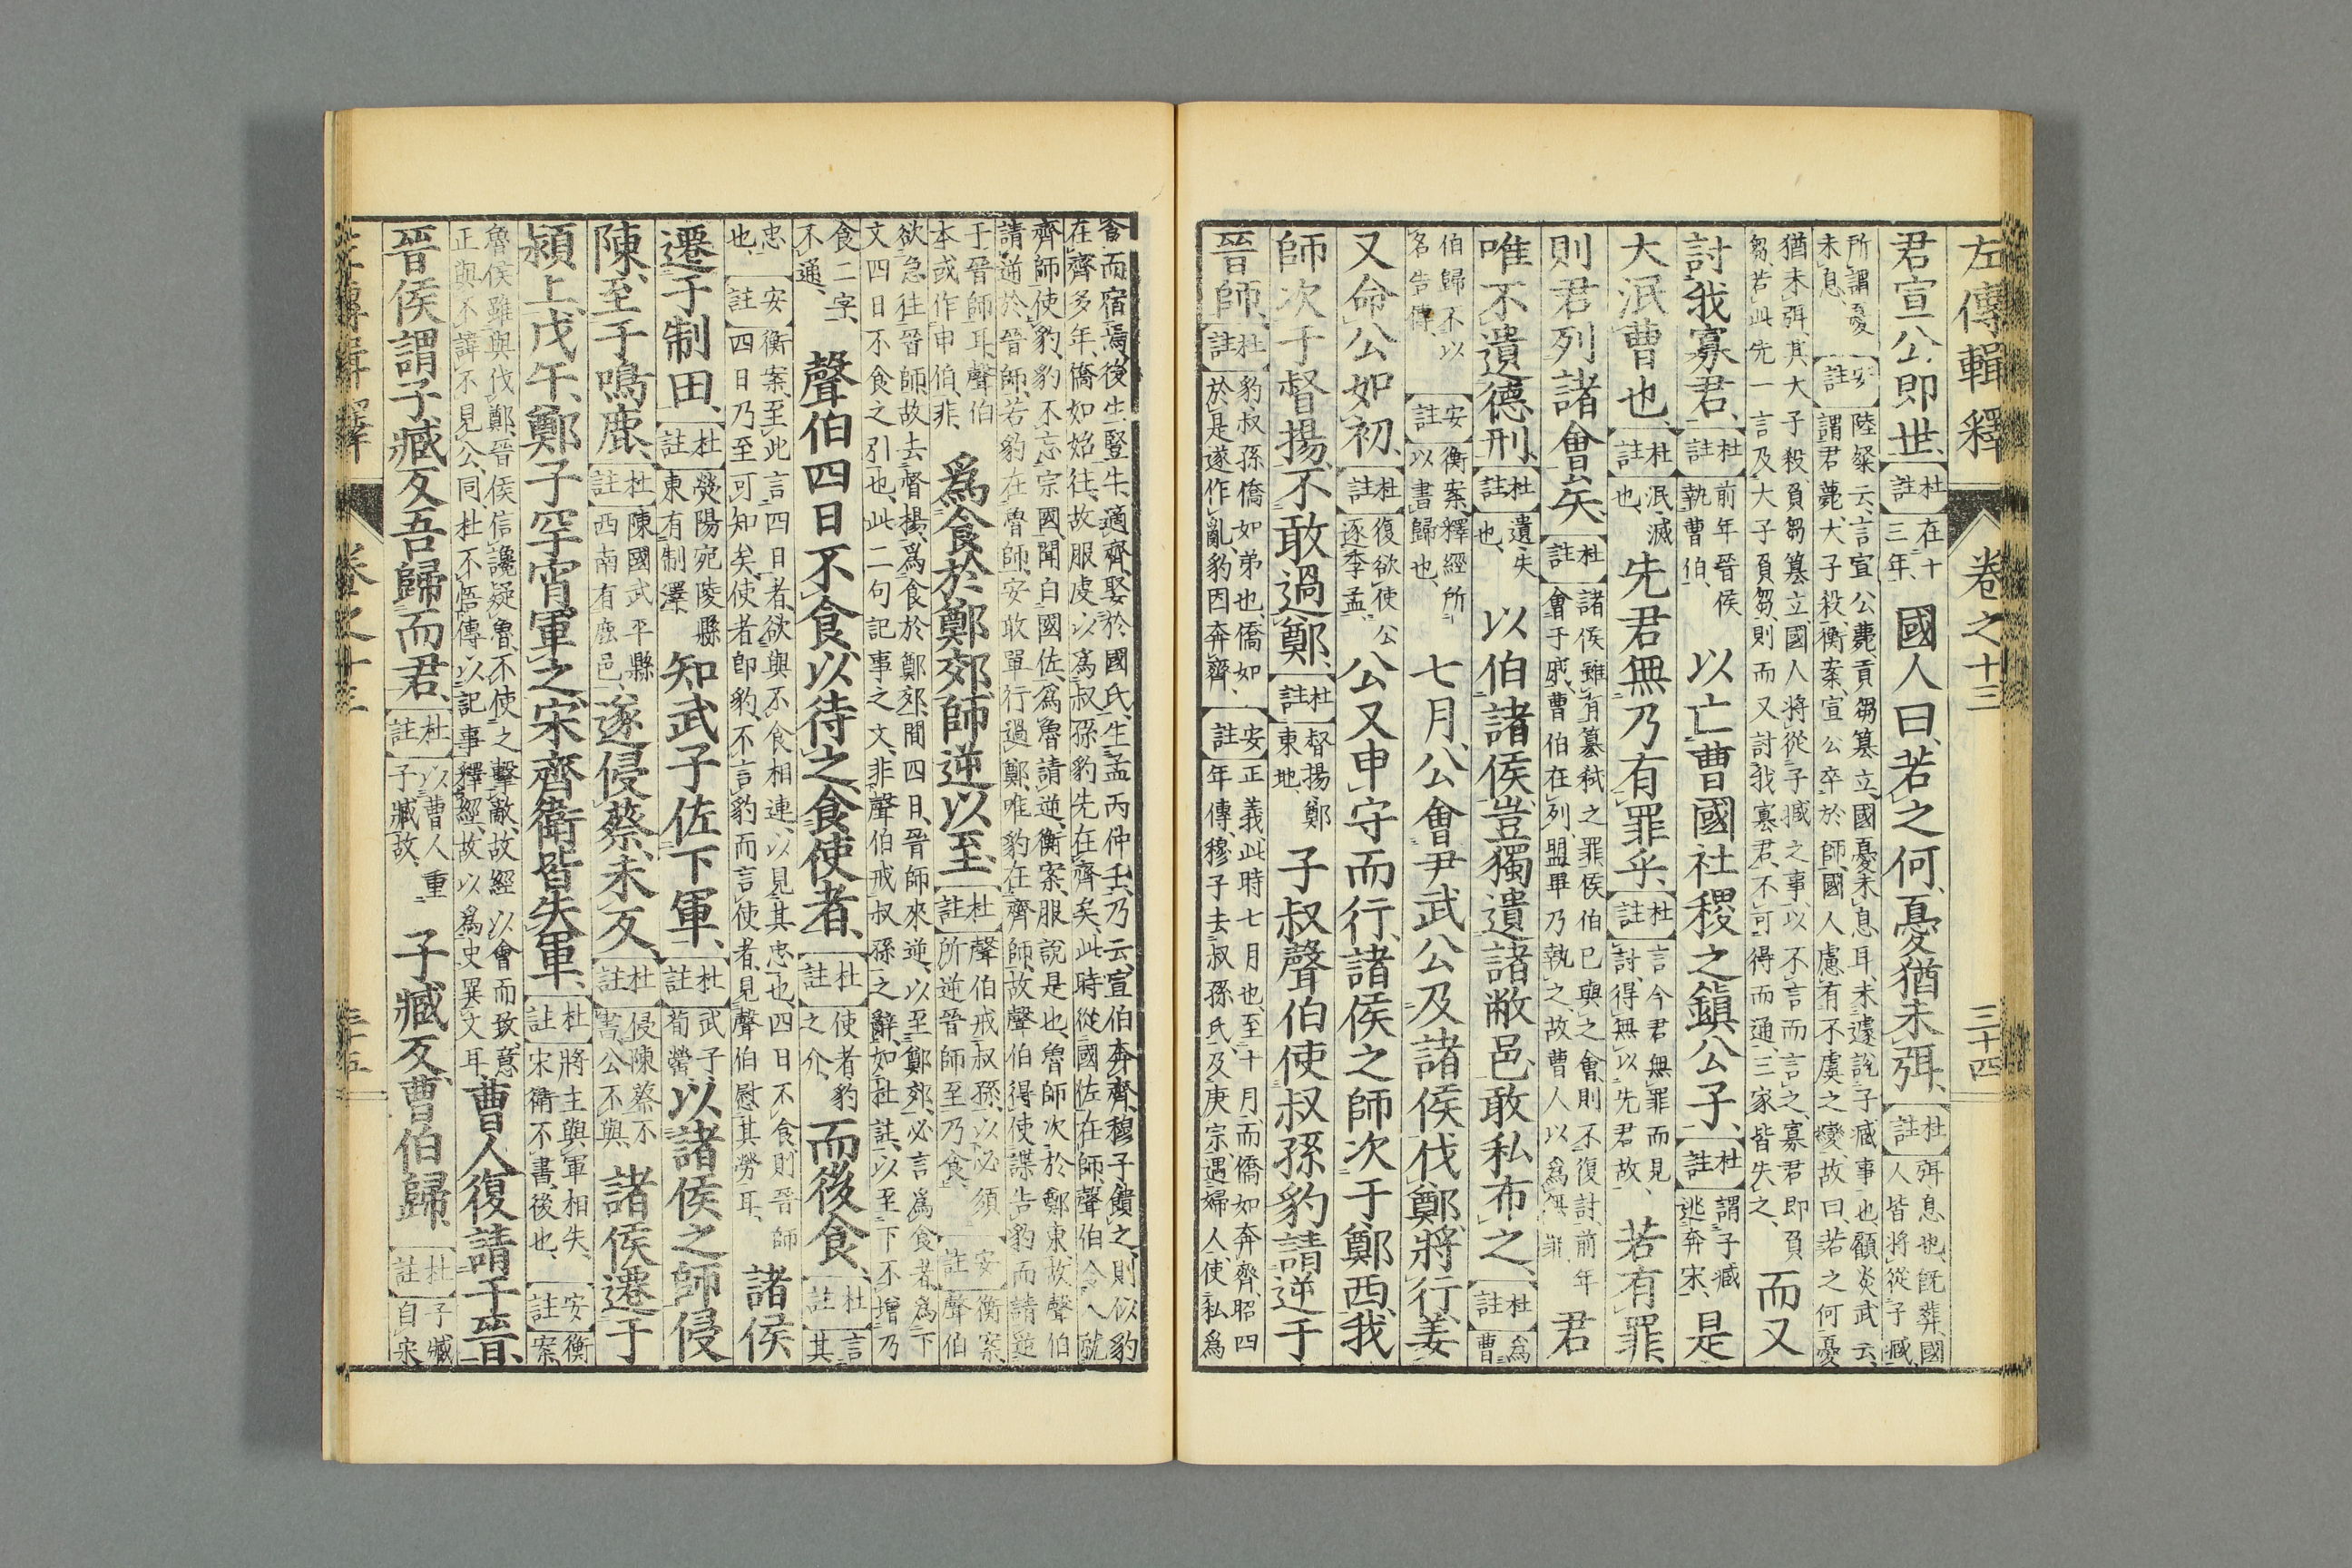 左傳輯釋 卷之十三 三十四
君宣公即世、杜註在十三年、國人曰、若之何、憂猶未弭、杜註弭、息也、既葬、國人皆將從子臧、
所謂憂未息、安註陸粲云、言宣公薨、負芻篡立、國憂未息耳、未遽說子臧事也、顧炎武云、謂君薨、大子殺、衡案、宣公卒於師、國人慮有不虞之變、故曰、若之何憂
猶未弭、其大子殺、負芻篡立、國人將從子臧之事、以不言而言之、寡君即負芻、若此先一言及大子負芻、則而又討我寡君、不可得而通、三家皆失之、而又
討我寡君、杜註前年晉侯執曹伯、以亡曹國社稷之鎮公子、杜註謂子臧逃奔宋、是
大泯曹也、杜註泯、滅也、先君無乃有罪乎、杜註言今君無罪而見討、得無以先君故、若有罪、
則君列諸會矣、杜註諸侯雖有篡弒之罪、侯伯已與之會、則不復討、前年會于戚、曹伯在列、盟畢乃執之、故曹人以爲無罪、君
唯不遺德刑、杜註遺、失也、以伯諸侯、豈獨遺諸敝邑、敢私布之、杜註爲曹
伯歸不以名告傳、安註衡案、釋經所以書歸也、七月、公會尹武公及諸侯伐鄭、將行、姜
又命公如初、杜註復欲使公逐季孟、公又申守而行、諸侯之師次于鄭西、我
師次于督揚、不敢過鄭、杜註督揚、鄭東地、子叔聲伯使叔孫豹請逆于
晉師、杜註豹、叔孫僑如弟也、僑如於是遂作亂、豹因奔齊、安註正義、此時七月也、至十月、而僑如奔齊、昭四年傳、穆子去叔孫氏、及庚宗、遇婦人、使私爲
食而宿焉、後生豎牛、適齊、娶於國氏、生孟丙仲壬、乃云、宣伯奔齊、穆子饋之、則似豹在齊多年、僑如始往、故服虔以爲叔孫豹先在齊矣、此時從國佐在師、聲伯令人就
齊師使豹、豹不忘宗國、聞白國佐、爲魯請逆、衡案、服說是也、魯師次於鄭東、故聲伯請逆於晉師、若豹在魯師、安敢單行過鄭、唯豹在齊師、故聲伯得使謀告豹而請逆
于晉師耳、聲伯本或作申伯、非、爲食於鄭郊、師逆以至、杜註聲伯戒叔孫、以必須所逆晉師至乃食、安註衡案、聲伯
欲急往晉師、故去督揚、爲食於鄭郊、間四日、晉師來逆、以至鄭郊、必言爲食者、爲下文四日不食之引也、此二句記事之文、非聲伯戒叔孫之辭、如杜註、以至下不增乃
食二字、不通、聲伯四日不食以待之、食使者、杜註使者、豹之介、而後食、杜註言其
忠也、安註衡案、至此言四日者、欲與不食相連、以見其忠也、四日不食、則晉師四日乃至可知矣、使者即豹、不言豹而言使者、見聲伯慰其勞耳、諸侯
遷于制田、杜註滎陽宛陵縣東有制澤、知武子佐下軍、杜註武子、荀罃、以諸侯之師侵
陳、至于鳴鹿、杜註陳國武平縣西南有鹿邑、遂侵蔡、未反、杜註侵陳蔡不書、公不與、諸侯遷于
潁上、戊午、鄭子罕宵軍之、宋齊衛皆失軍、杜註將主與軍相失、宋衛不書、後也、安註衡案、
魯侯雖與伐鄭、晉侯信讒疑魯、不使之擊敵、故經以會而致、意正與不諱不見公同、杜不悟傳以記事釋經、故以爲史異文耳、曹人復請于晉、
晉侯謂子臧、反、吾歸而君、杜註以曹人重子臧故、子臧反、曹伯歸、杜註子臧自宋
左傳輯釋 卷之十三 三十五